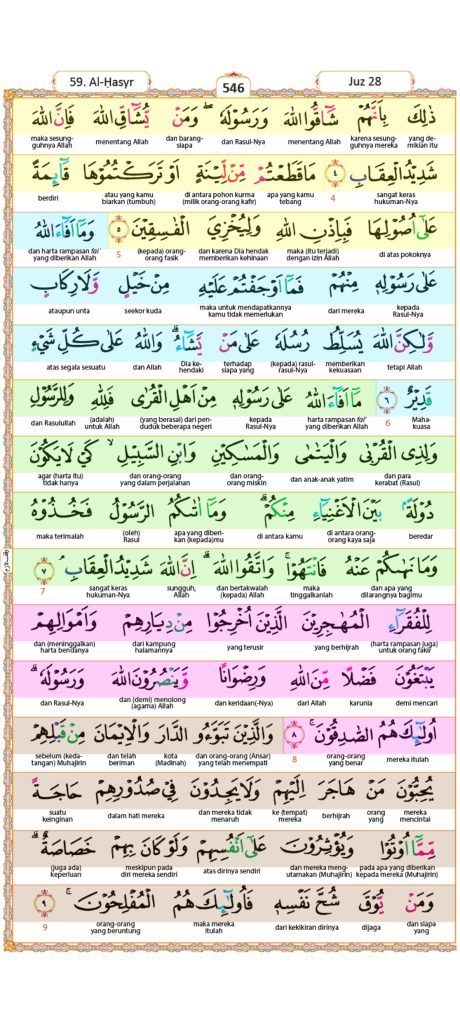 59. Al-Ḥasyr
546
Juz 28
ذٰلِكَ بِاَنَّهُمْ شَاۤقُّوا اللّٰهَ وَرَسُوْلَهٗ ۖ وَمَنْ يُّشَاۤقِّ اللّٰهَ فَاِنَّ اللّٰهَ
yang demikian itu karena sesungguhnya mereka menentang Allah dan Rasul-Nya dan barangsiapa menentang Allah maka sesungguhnya Allah
شَدِيْدُ الْعِقَابِ ٤ مَا قَطَعْتُمْ مِّنْ لِّيْنَةٍ اَوْ تَرَكْتُمُوْهَا قَاۤىِٕمَةً
sangat keras hukuman-Nya 4 apa yang kamu tebang di antara pohon kurma (milik orang-orang kafir) atau yang kamu biarkan (tumbuh) berdiri
عَلٰٓى اُصُوْلِهَا فَبِاِذْنِ اللّٰهِ وَلِيُخْزِيَ الْفٰسِقِيْنَ ٥ وَمَآ اَفَاۤءَ اللّٰهُ
di atas pokoknya maka (itu terjadi) dengan izin Allah dan karena Dia hendak memberikan kehinaan (kepada) orang-orang fasik 5 dan harta rampasan fai' yang diberikan Allah
عَلٰى رَسُوْلِهٖ مِنْهُمْ فَمَآ اَوْجَفْتُمْ عَلَيْهِ مِنْ خَيْلٍ وَّلَا رِكَابٍ
kepada Rasul-Nya dari mereka maka untuk mendapatkannya kamu tidak memerlukan seekor kuda ataupun unta
وَّلٰكِنَّ اللّٰهَ يُسَلِّطُ رُسُلَهٗ عَلٰى مَنْ يَّشَاۤءُ ۗ وَاللّٰهُ عَلٰى كُلِّ شَيْءٍ
tetapi Allah memberikan kekuasaan (kepada) rasul-rasul-Nya terhadap siapa yang Dia kehendaki dan Allah atas segala sesuatu
قَدِيْرٌ ٦ مَآ اَفَاۤءَ اللّٰهُ عَلٰى رَسُوْلِهٖ مِنْ اَهْلِ الْقُرٰى فَلِلّٰهِ وَلِلرَّسُوْلِ
Mahakuasa 6 harta rampasan fai' yang diberikan Allah kepada Rasul-Nya (yang berasal) dari penduduk beberapa negeri (adalah) untuk Allah dan Rasulullah
وَلِذِى الْقُرْبٰى وَالْيَتٰمٰى وَالْمَسٰكِيْنِ وَابْنِ السَّبِيْلِۙ كَيْ لَا يَكُوْنَ
dan para kerabat (Rasul) dan anak-anak yatim dan orang-orang miskin dan orang-orang yang dalam perjalanan agar (harta itu) tidak hanya
دُوْلَةً ۢ بَيْنَ الْاَغْنِيَاۤءِ مِنْكُمْۗ وَمَآ اٰتٰىكُمُ الرَّسُوْلُ فَخُذُوْهُ
beredar di antara orang-orang kaya saja di antara kamu apa yang diberikan (kepada)mu (oleh) Rasul maka terimalah
وَمَا نَهٰىكُمْ عَنْهُ فَانْتَهُوْاۚ وَاتَّقُوا اللّٰهَ ۗ اِنَّ اللّٰهَ شَدِيْدُ الْعِقَابِۘ ٧
dan apa yang dilarangnya bagimu maka tinggalkanlah dan bertakwalah (kepada) Allah sungguh, Allah sangat keras hukuman-Nya 7
لِلْفُقَرَاۤءِ الْمُهٰجِرِيْنَ الَّذِيْنَ اُخْرِجُوْا مِنْ دِيَارِهِمْ وَاَمْوَالِهِمْ
(harta rampasan juga) untuk orang fakir yang berhijrah yang terusir dari kampung halamannya dan (meninggalkan) harta bendanya
يَبْتَغُوْنَ فَضْلًا مِّنَ اللّٰهِ وَرِضْوَانًا وَّيَنْصُرُوْنَ اللّٰهَ وَرَسُوْلَهٗ ۗ
demi mencari karunia dari Allah dan keridaan(-Nya) dan (demi) menolong (agama) Allah dan Rasul-Nya
اُولٰۤىِٕكَ هُمُ الصّٰدِقُوْنَۚ ٨ وَالَّذِيْنَ تَبَوَّءُو الدَّارَ وَالْاِيْمَانَ مِنْ قَبْلِهِمْ
mereka itulah orang-orang yang benar 8 dan orang-orang (Ansar) yang telah menempati kota (Madinah) dan telah beriman sebelum (kedatangan) Muhajirin
يُحِبُّوْنَ مَنْ هَاجَرَ اِلَيْهِمْ وَلَا يَجِدُوْنَ فِيْ صُدُوْرِهِمْ حَاجَةً
mereka mencintai orang yang berhijrah ke (tempat) mereka dan mereka tidak menaruh dalam hati mereka suatu keinginan
مِّمَّآ اُوْتُوْا وَيُؤْثِرُوْنَ عَلٰٓى اَنْفُسِهِمْ وَلَوْ كَانَ بِهِمْ خَصَاصَةٌ ۗ
pada apa yang diberikan kepada mereka (Muhajirin) dan mereka mengutamakan (Muhajirin) atas dirinya sendiri meskipun pada diri mereka sendiri (juga ada) keperluan
وَمَنْ يُّوْقَ شُحَّ نَفْسِهٖ فَاُولٰۤىِٕكَ هُمُ الْمُفْلِحُوْنَۚ ٩
dan siapa yang dijaga dari kekikiran dirinya maka mereka itulah orang-orang yang beruntung 9